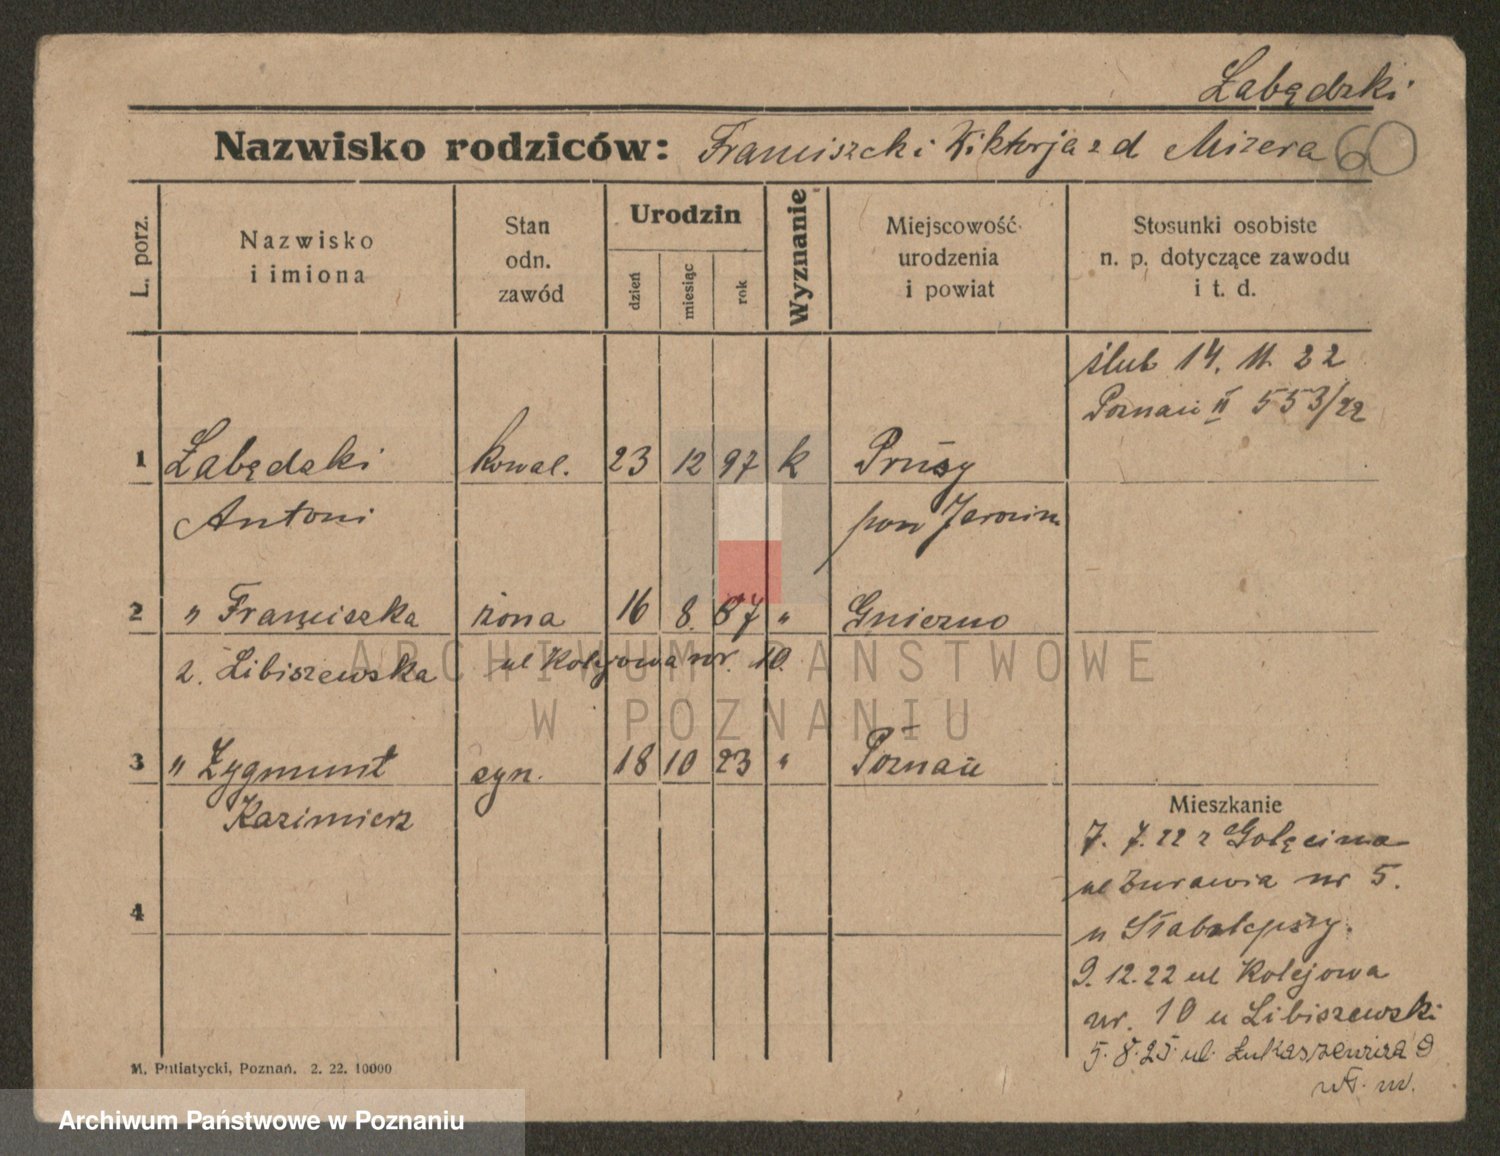 Łabędzki
Nazwisko rodziców: Franciszek i Wiktorja z d Mizera
60
L. porz.
Nazwisko
i imiona
Stan
odn.
zawód
Urodzin
dzień
miesiąc
rok
Wyznanie
Miejscowość
urodzenia
i powiat
Stosunki osobiste
n. p. dotyczące zawodu
i t. d.
ślub 14. 11. 22
Poznań II 553/22
1 Łabędzki kowal. 23 12 97 k Prusy
Antoni pow Jarocin
2 " Franciszka żona 16 8. 87 " Gniezno
z. Libiszewska ul Kolejowa nr. 10.
3 " Zygmunt syn. 18 10 23 " Poznań
Kazimierz
4
Mieszkanie
7. 7. 22 z Golęcina
ul Żurawia nr 5.
u
9. 12. 22 ul Kolejowa
nr. 10 u Libiszewski
5. 8. 25. ul. Łukaszewicza 9
M. Putiatycki, Poznań. 2. 22. 10000
ARCHIWUM PAŃSTWOWE
W POZNANIU
Archiwum Państwowe w Poznaniu